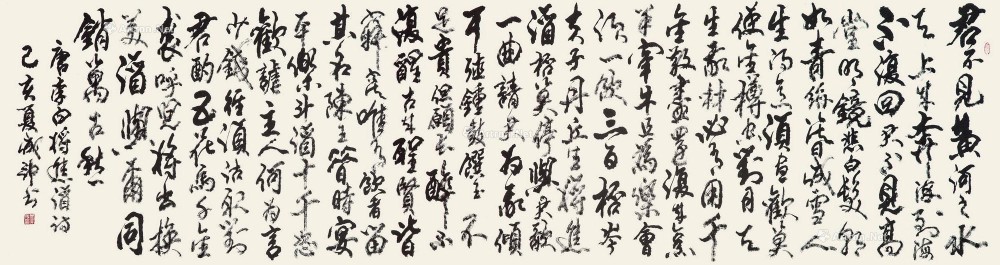 君不見黃河之水
天上來奔流到海
不復回君不見高
堂明鏡悲白髮朝
如青絲暮成雪人
生得意須盡歡莫
使金樽空對月天
生我材必有用千
金散盡還復來烹
羊宰牛且為樂會
須一飲三百杯岑
夫子丹丘生將進
酒杯莫停與君歌
一曲請君為我傾
耳聽鐘鼓饌玉不
足貴但願長醉不
復醒古來聖賢皆
寂寞唯有飲者留
其名陳王昔時宴
平樂斗酒十千恣
歡謔主人何為言
少錢徑須沽取對
君酌五花馬千金
裘呼兒將出換
美酒與爾同
銷萬古愁
唐李白將進酒詩
己亥夏書